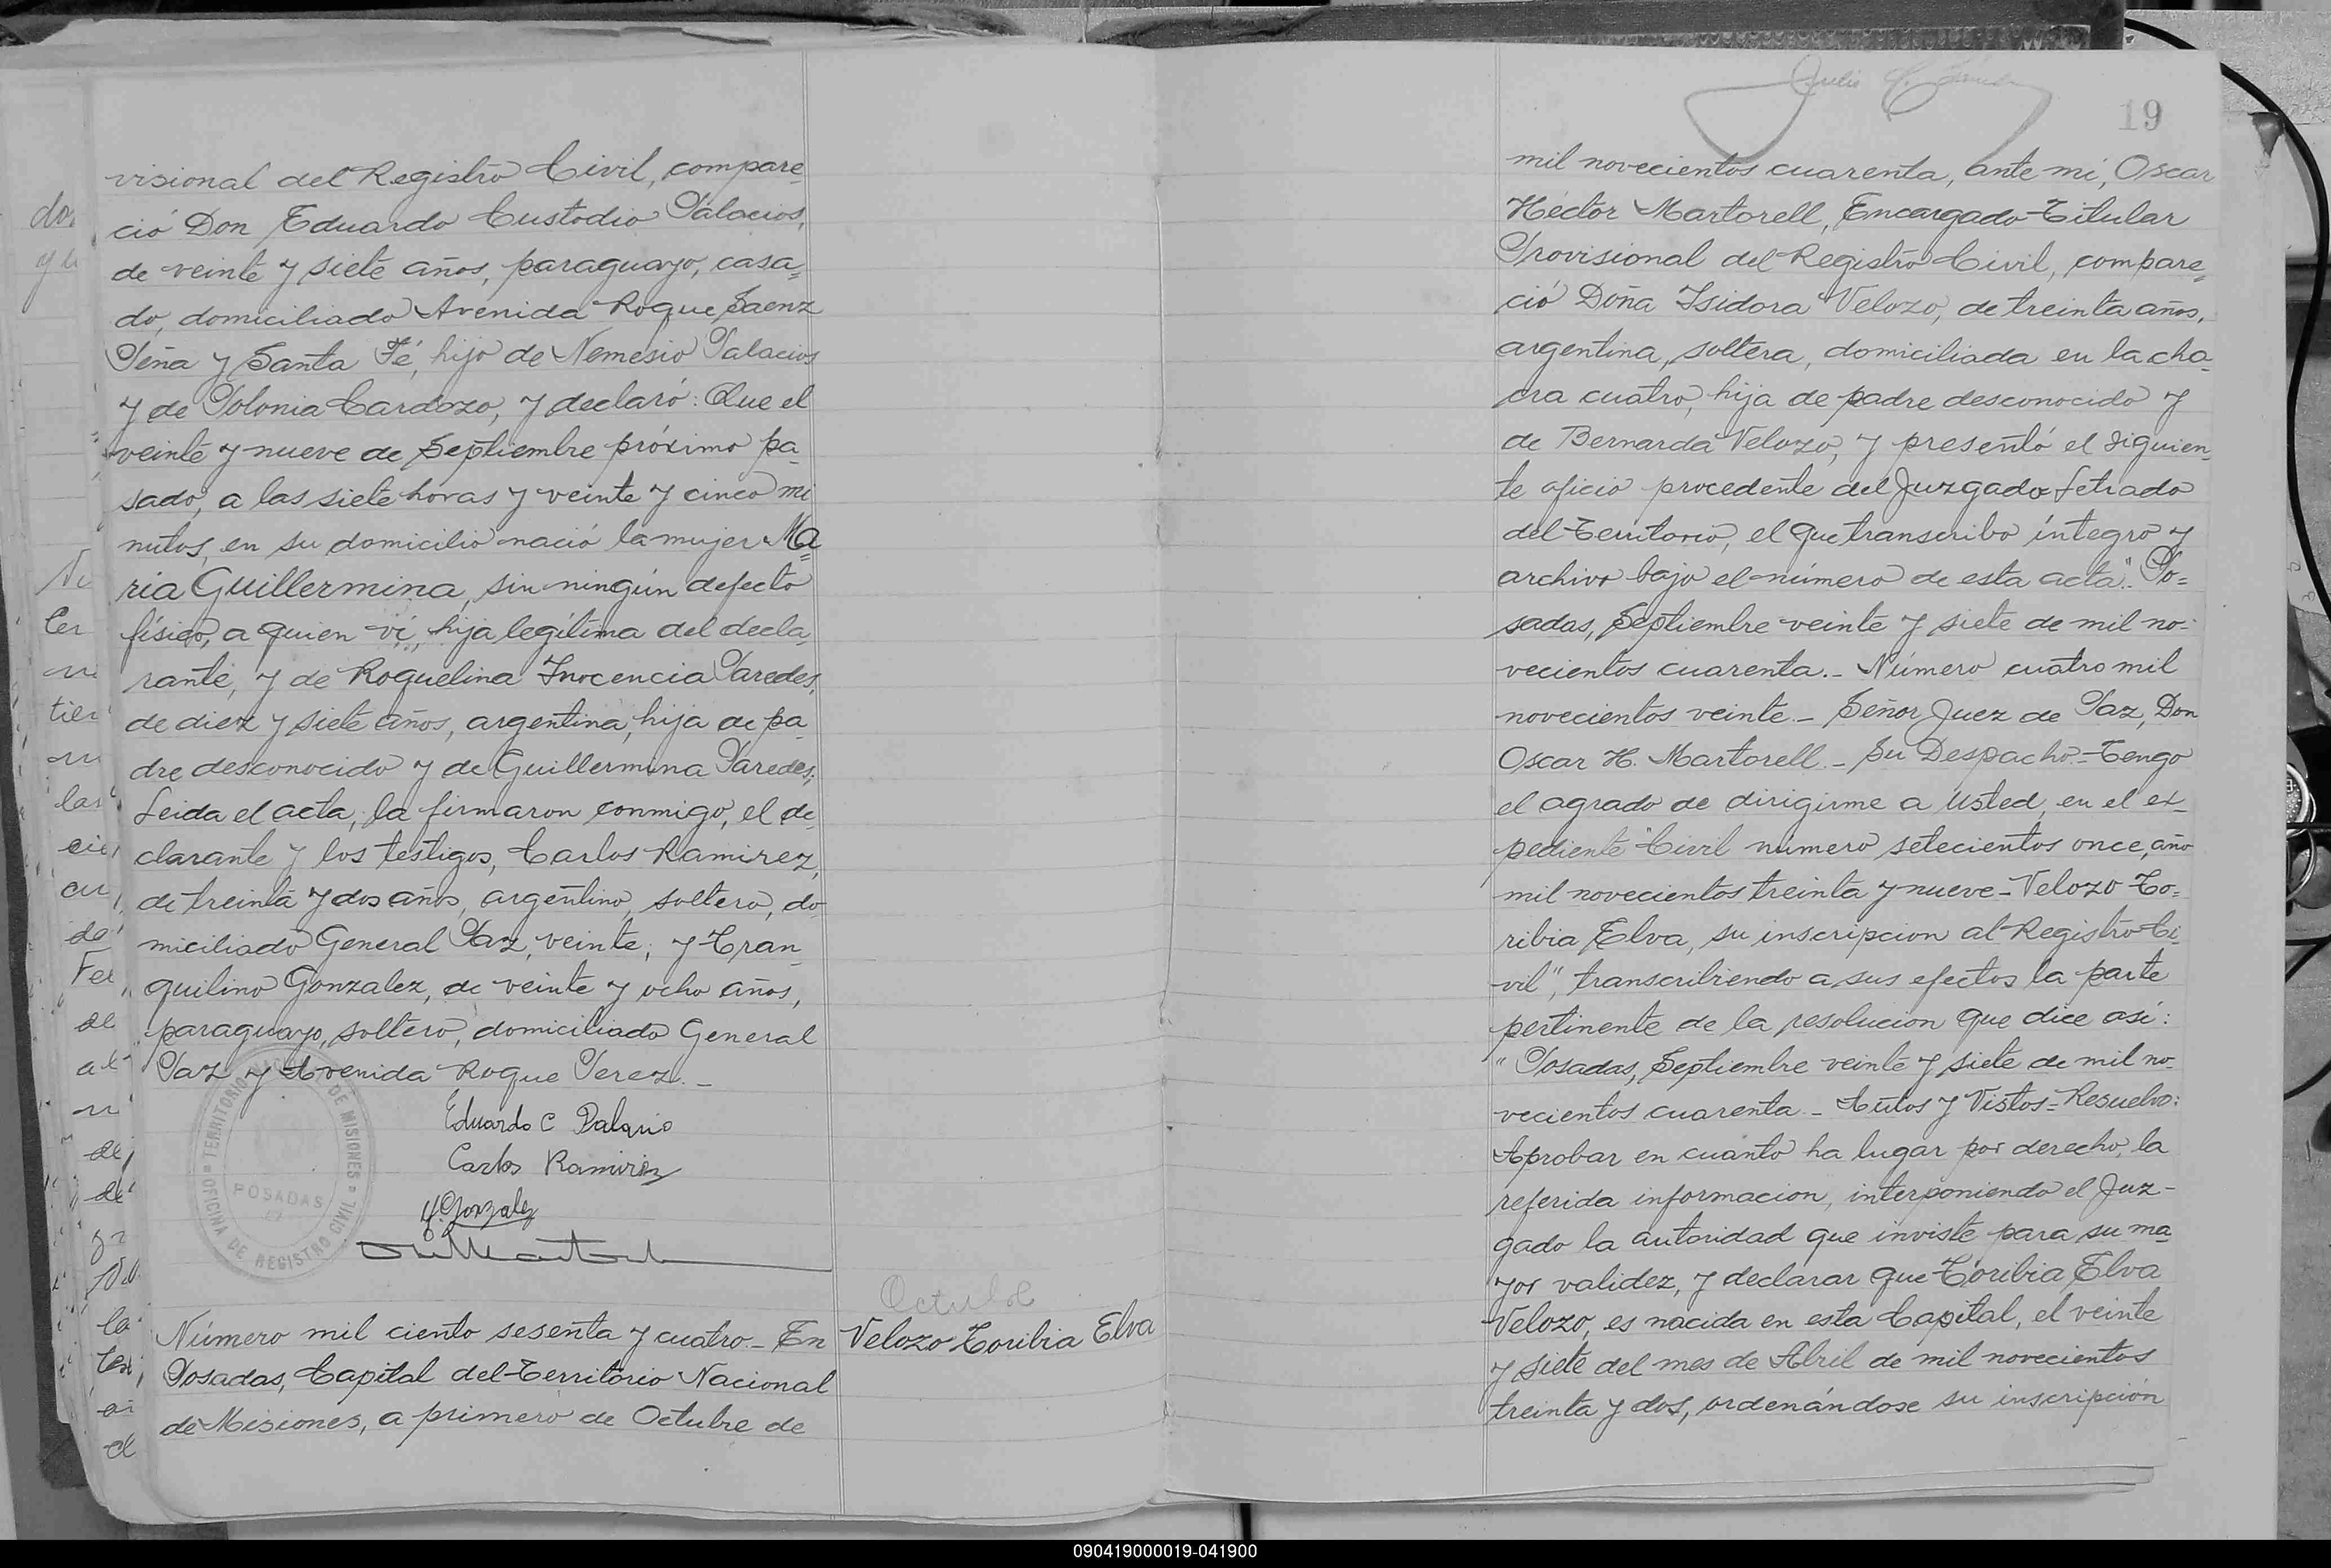 visional del Registro Civil, compare=
ció Don Eduardo Custodio Palacios,
de veinte y siete años, paraguayo, casa=
do, domiciliado Avenida Roque Saenz
Peña y Santa Fé, hijo de Nemesio Palacios
y de Polonia Cardozo, y declaró: Que el
veinte y nueve de Septiembre próximo pa=
sado, a las siete horas y veinte y cinco mi
nutos, en su domicilio nació la mujer Ma=
ria Guillermina, sin ningún defecto
físico, a quien ví, hija legítima del decla=
rante, y de Roquelina Inocencia Paredes,
de diez y siete años, argentina, hija de pa=
dre desconocido y de Guillermina Paredes.
Leida el acta, la firmaron conmigo, el de=
clarante y los testigos, Carlos Ramirez,
de treinta y dos años, argentino, soltero, do=
miciliado General Paz, veinte; y Tran=
quilino Gonzalez, de veinte y ocho años,
paraguayo, soltero, domiciliado General
Paz y Avenida Roque Perez.-
TERRITORIO DE MISIONES
POSADAS
OFICINA DE REGISTRO CIVIL
Eduardo C Palacio
Carlos Ramirez
Gonzalez
Octubre
Número mil ciento sesenta y cuatro.- En
Velozo Toribia Elva
Posadas, Capital del Territorio Nacional
de Misiones, a primero de Octubre de
19
mil novecientos cuarenta, ante mí, Oscar
Héctor Martorell, Encargado Titular
Provisional del Registro Civil, compare=
ció Doña Isidora Velozo, de treinta años,
argentina, soltera, domiciliada en la cha=
cra cuatro, hija de padre desconocido y
de Bernarda Velozo, y presentó el siguien=
te oficio procedente del Juzgado Letrado
del Territorio, el que transcribo íntegro y
archivo bajo el número de esta acta: "Po=
sadas, Septiembre veinte y siete de mil no=
vecientos cuarenta.- Número cuatro mil
novecientos veinte.- Señor Juez de Paz, Don
Oscar H. Martorell.- Su Despacho.- Tengo
el agrado de dirigirme a Usted, en el ex=
pediente "Civil número setecientos once, año
mil novecientos treinta y nueve - Velozo To=
ribia Elva, su inscripcion al Registro Ci=
vil", transcribiendo a sus efectos la parte
pertinente de la resolucion que dice así:
"Posadas, Septiembre veinte y siete de mil no=
vecientos cuarenta.- Autos y Vistos = Resuelvo:
Aprobar en cuanto ha lugar por derecho, la
referida informacion, interponiendo el Juz=
gado la autoridad que inviste para su ma=
yor validez, y declarar que Toribia Elva
Velozo, es nacida en esta Capital, el veinte
y siete del mes de Abril de mil novecientos
treinta y dos, ordenándose su inscripción
090419000019-041900